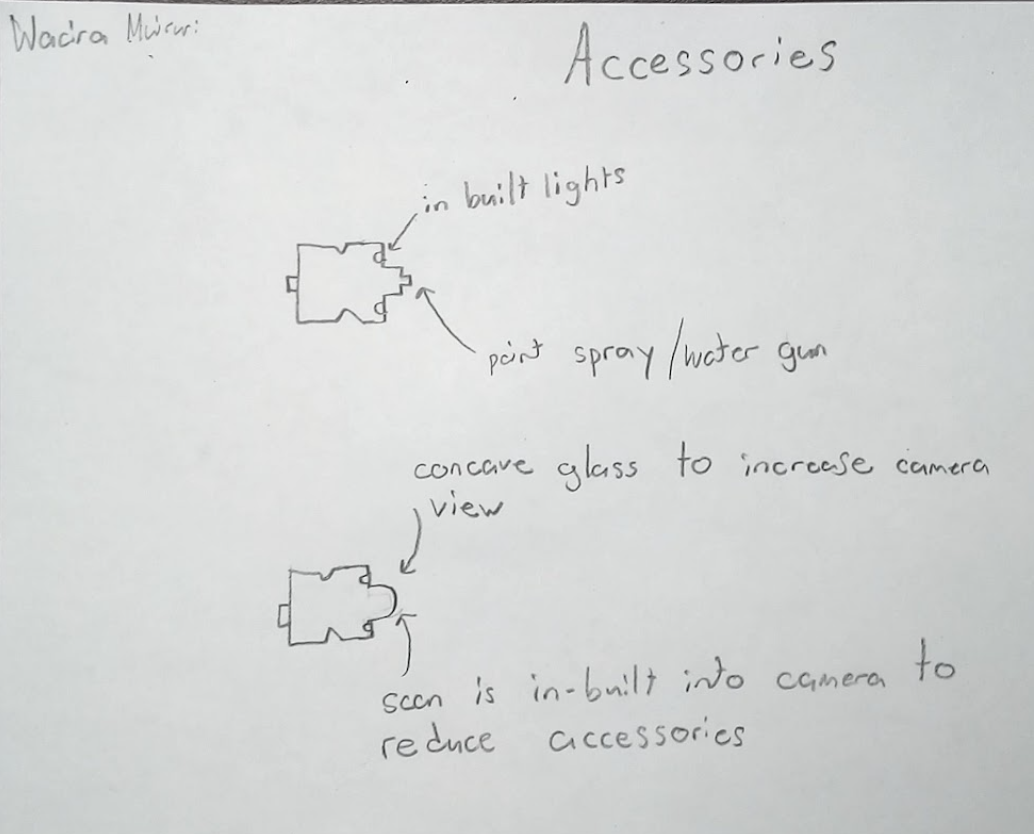 Wacira
Accessories
in built lights
paint spray/water gun
concave glass to increase camera
view
scan is in-built into camera to
reduce accessories